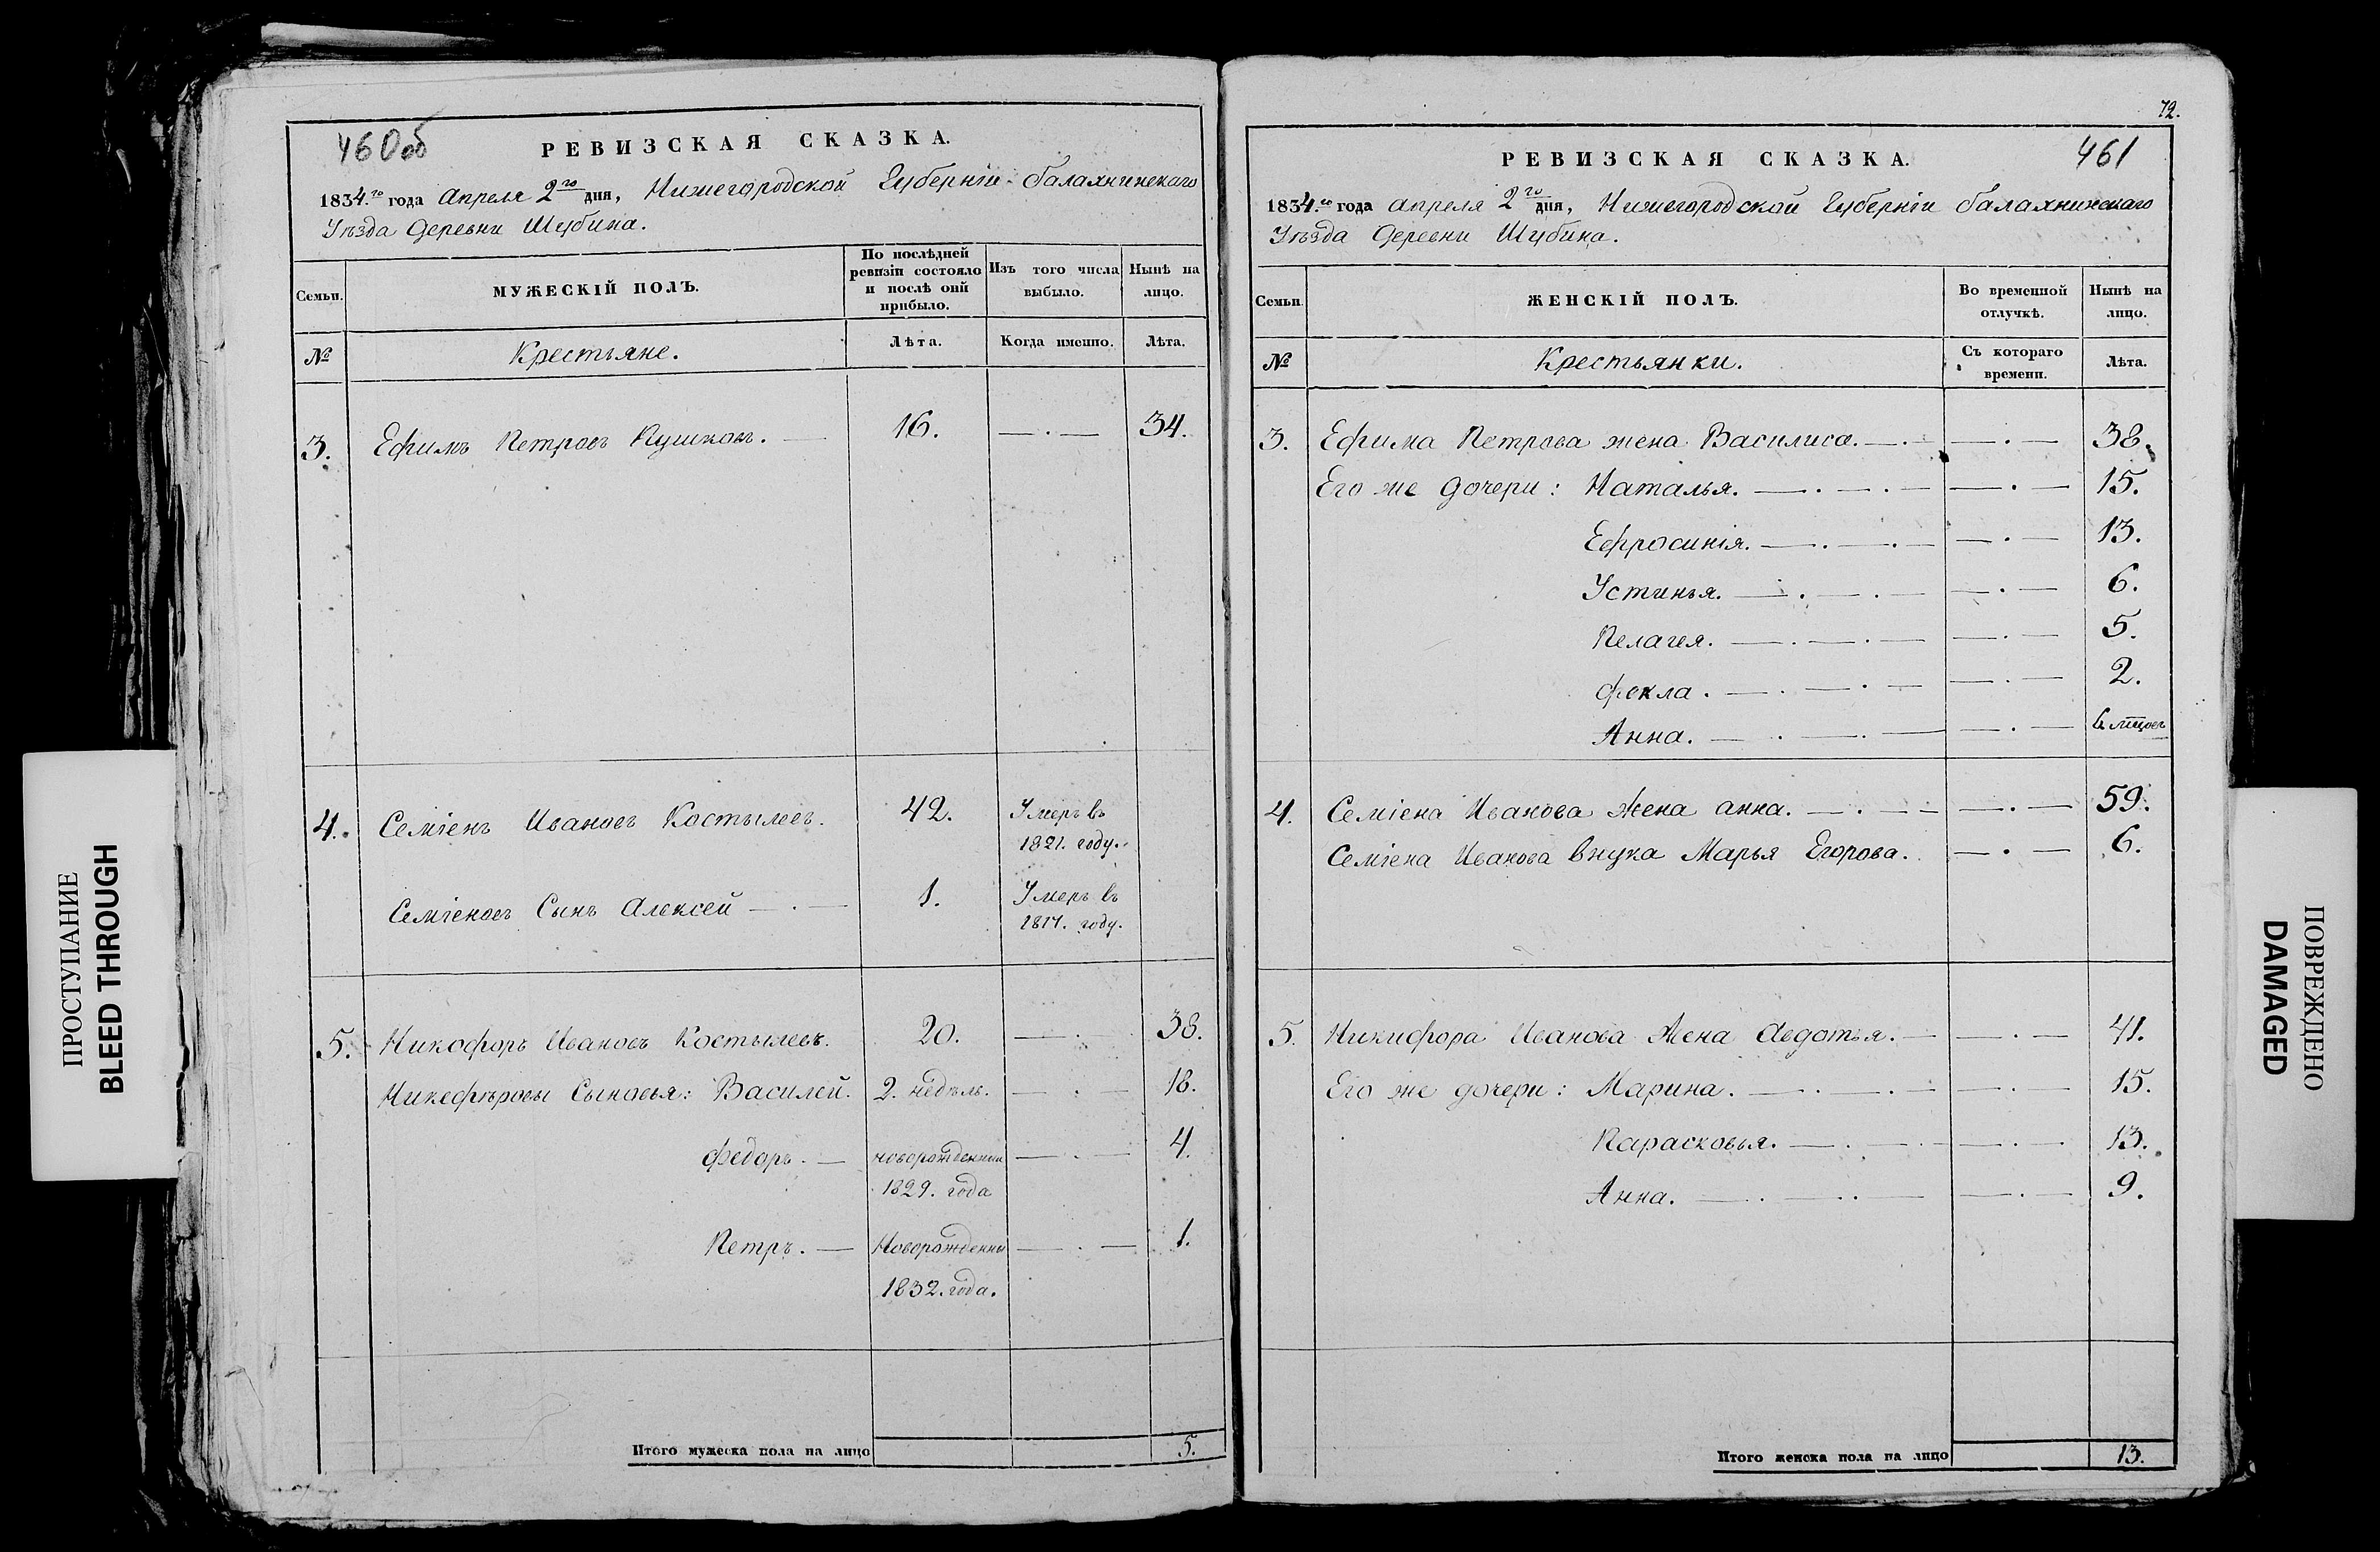 460об
РЕВИЗСКАЯ СКАЗКА.
1834.го года Апреля 2го дня, Нижегородской Губерніи Балахнинскаго
Уѣзда Деревни Шубина.
Семьи.
МУЖЕСКІЙ ПОЛЪ.
По послѣдней ревизіи состояло и послѣ оной прибыло.
Изъ того числа выбыло.
Нынѣ на лицо.
№
Крестьяне.
Лѣта.
Когда именно.
Лѣта.
3. Ефимъ Петровъ Пушковъ. 16. 34.
4. Семіенъ Ивановъ Костылевъ. 42. Умеръ въ
1821. году.
Семіеновъ Сынъ Алексей 1. Умеръ въ
1817. году.
5. Никофоръ Ивановъ Костылевъ. 20. 38.
Никефоровы Сыновья: Василей. 2. недѣль. 18.
Федоръ. новорожденный 4.
1829. года
Петръ. Новорожденны 1.
1832. года.
Итого мужеска пола на лицо 5.
72.
РЕВИЗСКАЯ СКАЗКА.
461
1834.го года Апреля 2го дня, Нижегородской Губерніи Балахнинскаго
Уѣзда Деревни Шубина.
Семьи.
ЖЕНСКІЙ ПОЛЪ.
Во временной отлучкѣ.
Нынѣ на лицо.
№
Крестьянки.
Съ котораго времени.
Лѣта.
3. Ефима Петрова жена Василиса. 38.
Его же дочери: Наталья. 15.
Ефросинія. 13.
Устинья. 6.
Пелагея. 5.
Фекла. 2.
Анна. 6
4. Семіена Иванова Жена анна. 59.
Семіена Иванова внука Марья Егорова. 6.
5. Никифора Иванова Жена Авдотья. 41.
Его же дочери: Марина. 15.
Парасковья. 13.
Анна. 9.
Итого женска пола на лицо 13.
ПРОСТУПАНИЕ
BLEED THROUGH
ПОВРЕЖДЕНО
DAMAGED